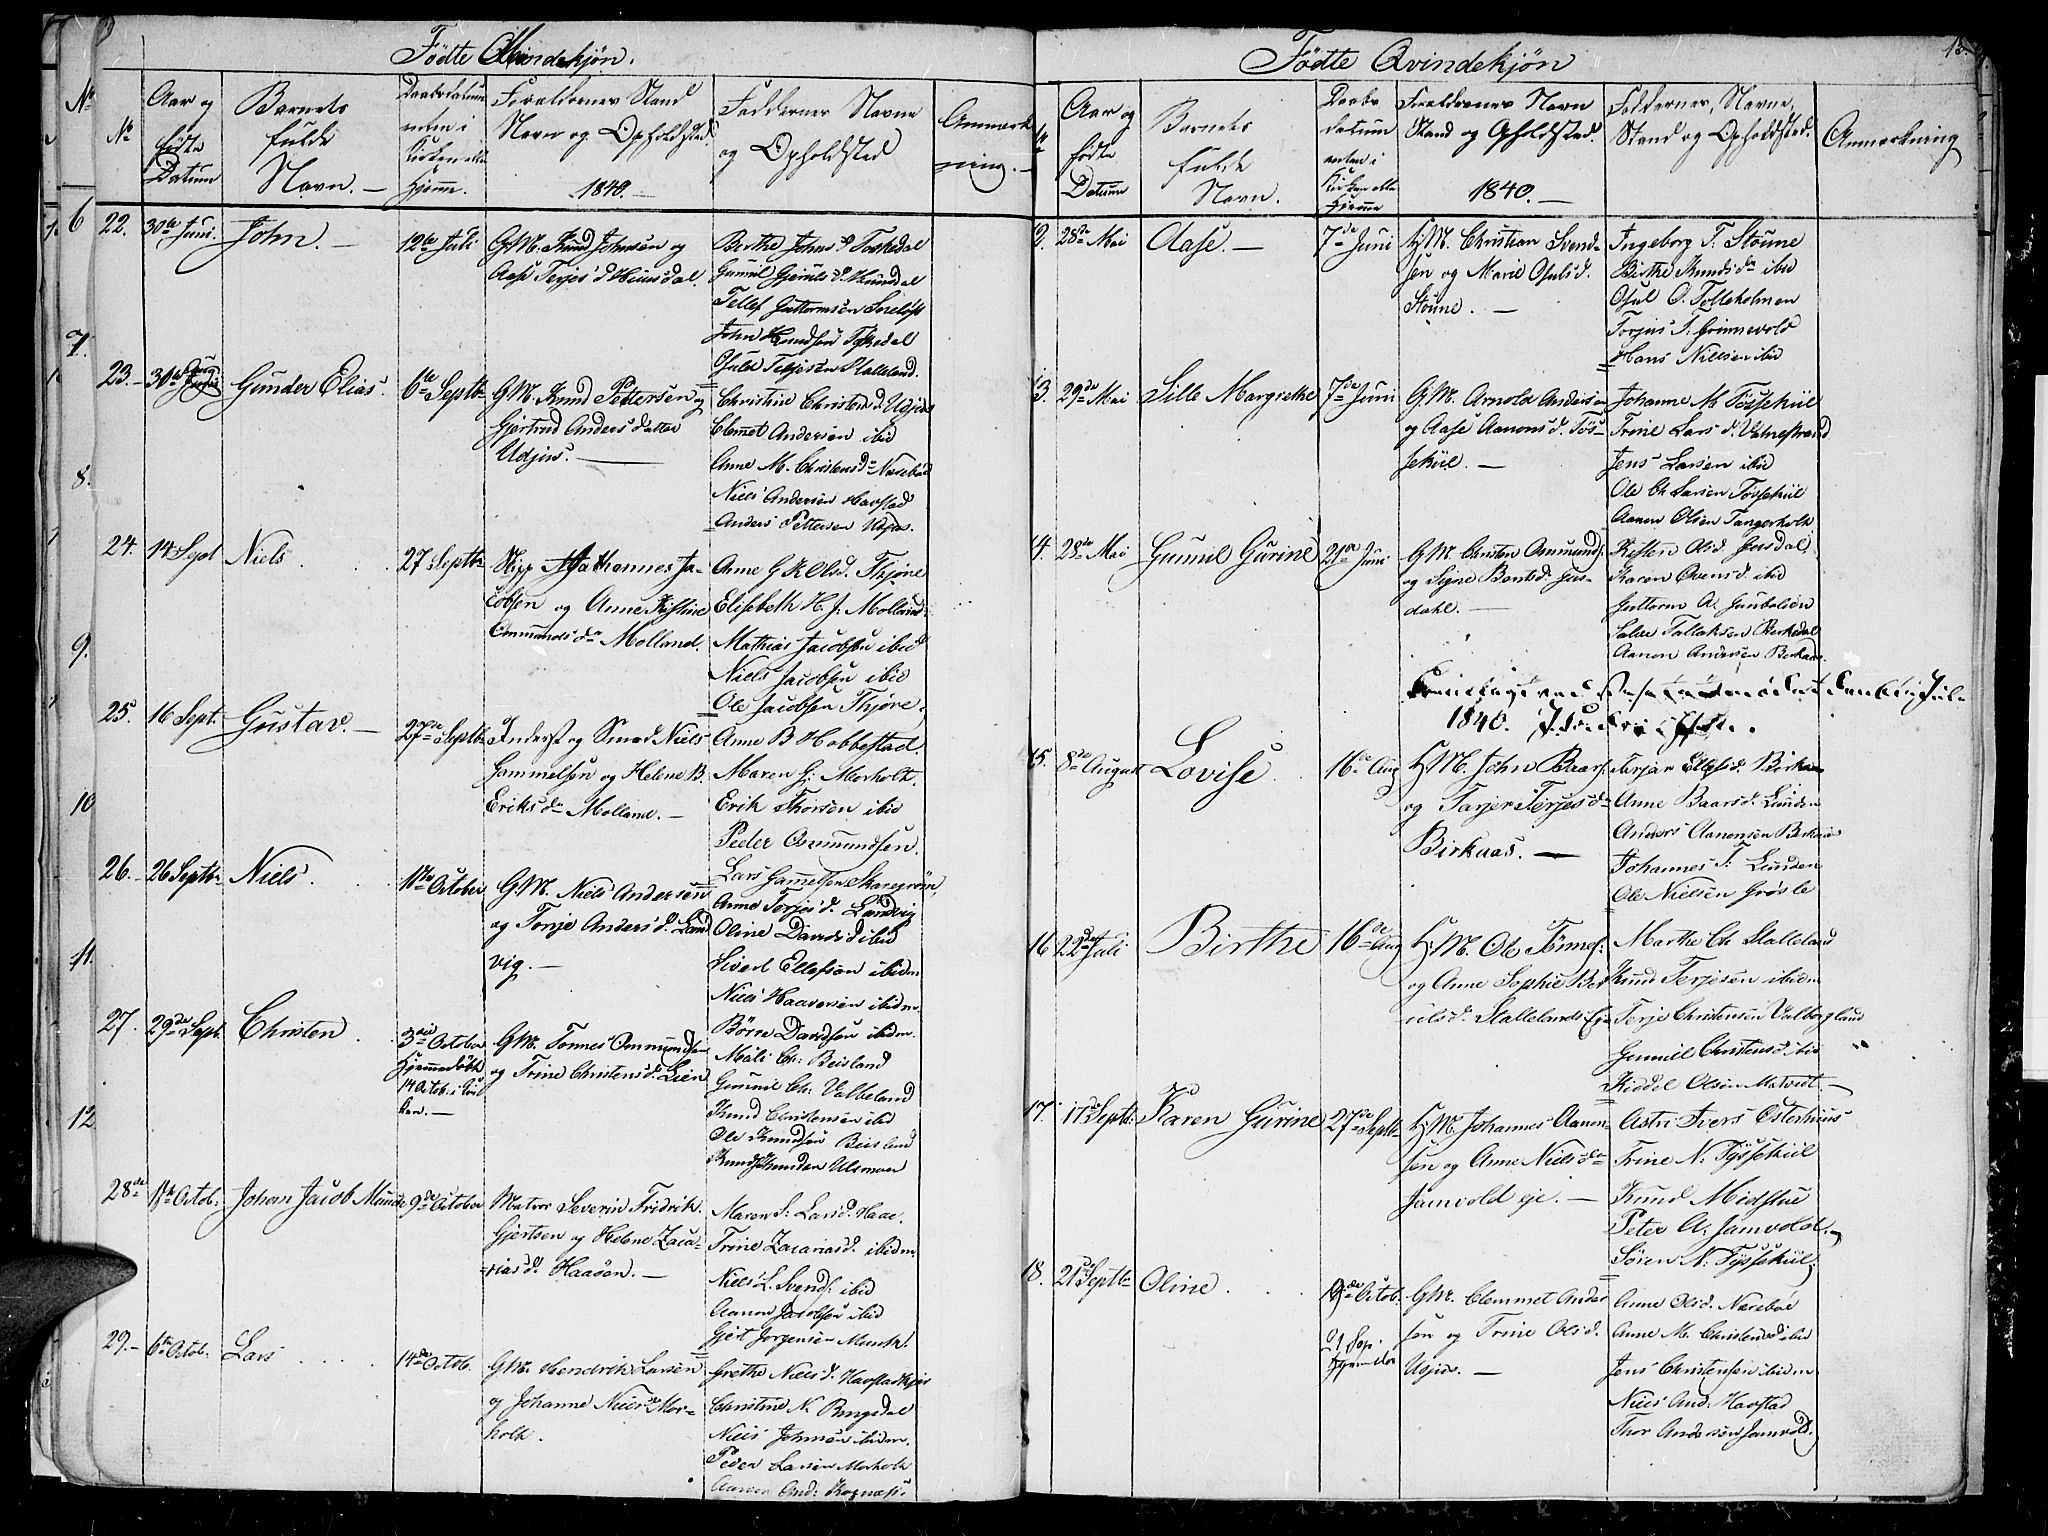 Fødte Mandekjøn.
No
Aar og
fødte
Datum
Barnets
fulde
Navn. —
Daabsdatum
enten i
Kirken eller
Hjemme.
Forældrenes Stand
Navn og Opholdsted.
1840.
Faddernes Navne
og Opholdsted
Anmærk
ning. —
22. 30te Juni. John. — 12te Juli
G.M. Knud Johnsen og
Aase Terjes d.
Gunder Elias. 6te Septbr
23. 30te
G.M. Knud Pettersen og
Gjertrud Anders datter
Udjus. —
Christine Christens d. Udjus
Clemet Andersen ibid
Anne M. Christensd. Næsebøe
Niels Andersen Havstad
Anders Pettersen Udjus.
24. 14 Sept Niels 27 Septbr
Johannes Ja-
cobsen og Anne Kistine
Omunds dr Molland.
Anne G K Olsd. Thjøre
Elisebeth H. J. Molland
Mathias Jacobsen ibid
Niels Jacobsen ibid
Ole Jacobsen Thjøre
25. 16 Sept. Gustav. — 27de Septbr
Inderst og Smed Niels
Gammelsen og Helene B.
Eriks dr Molland. —
Anne B Hobbestad.
Maren G. Morholt.
Erik Thorsen ibid
Peder Osmundsen.
26. 26 Septbr Niels. 11te October
G.M. Niels Andersen
og Tonje Anders d. Land
vig. —
Lars Gamelsen Skaregrøn,
Anne Torjes d. Landvig
Oline Davids d ibid
Sivert Ellefson ibidm
Niels Haaversen ibidm
Børre Davidsen ibidm.
27. 29de Sept. Christen
3die October
Hjemmedøbt
14 Octob. i Kir
ken. —
G.M. Tønnes Ommundsen
og Trine Christens d. Lien
Mali Ch: Beisland
Gunnil Ch. Valbeland
Knud Christensen ibid
Ole Knudsen Beisland
28de Octob. Johan Jacob Munch 9de October
Matros Severin Fridrik
Gjertsen og Helene Zaca-
rias d. Haaøen. —
Maren S: Larsd. Haae.
Trine Zacarias d. ibidm.
Niels L. Svends. ibid
Aanon Jacobsen ibid
Gjert Jørgensen Munch.
29. — 6te Octob. Lars 14de Octob.
G.M. Hendrik Larsen
og Johanne Niels dr Mor-
holt.
Grethe Niels d. Havstadkjis
Christine N. Ringsdal
Niels Johnsen ibidm.
Peder Larsen Morholt
Aanen And:
Fødte Qvindekjøn
15.
Aar og
fødte
Datum
Barnets
fulde
Navn.
Daabs
datum
enten i
Kirken eller
Hjemme
Forældrenes Navn
Stand og Opholdsted.
1840. —
Faddernes, Navne,
Stand og Opholdsted.
Anmærkning
12. 28de Mai Aase. — 7de Juni
H.M. Christian Svend-
sen og Marie Osulsd.
Støune. —
Ingeborg T. Støune
Birthe Knuds dr ibid
Osul O. Tolleholmen
Torjus T. Grimevold
Hans Nielsen ibid
13. 29de Mai Sille Margrethe 7de Juni
G.M. Arnold Andersen
og Aase Aanons d. Tøs-
sekiil. —
Johanne M. Tøssekiil
Trine Lars d. Valnestrand
Jens Larsen ibid
Ole Ch Larsen Tøssekiil
Aanon Olsen Tangerholt
14. 28de Mai Gunnil Gurine 21de Juni
G.M. Christen Osmunds.
og Signe Bentsd. Jus-
dahl. —
Kisten Olsd. Jusdal.
Karen Evensd. ibid
Guttorm A.
Salve Tallaksen Birkedal
Aanon Andersen Birkaas.
1840.
15. 8de August Lovise 16de Aug
H.M. John Baars:
og Tarjer Terjes d
Birkaas. —
Tarjer Ellefsd. Birkaas
Anne Baars d. Lunden
Anders Aanonsen Birkaas
Johannes T. Lunden
Ole Nielsen Grøsle
16 22de Juli Birthe 16de Aug
H.M. Ole Tønnes:
og Anne Sophie Ber
uls d. Stallelands Eje
Marthe Ch Stalleland
Knud Terjesen ibidm
Terje Christensen Valborgland
Gunnild Christens d ibid
Kiddel Olsen Matvedt. —
17. 17de Septbr: Karen Gurine 27de Septbr
H.M. Johannes Aanon
sen og Anne Niels dr
Jamvold eje. —
Astri Ivers Østerhuus
Trine N. Tyssekiil
Knud Midstue
Peter A. Jamvold.
Søren N. Tyssekiil;
18. 21de Septbr Oline. Octob.
21 Sep:
Hjemdbt
G.M. Clemmet Ander
sen og Trine Olsd.
Udjus. —
Anne Olsd. Næsebøe
Anne M. Christensd ibid
Jens Christensen ibidm
Niels And: Havstad
Thor Andersen Jamvold.